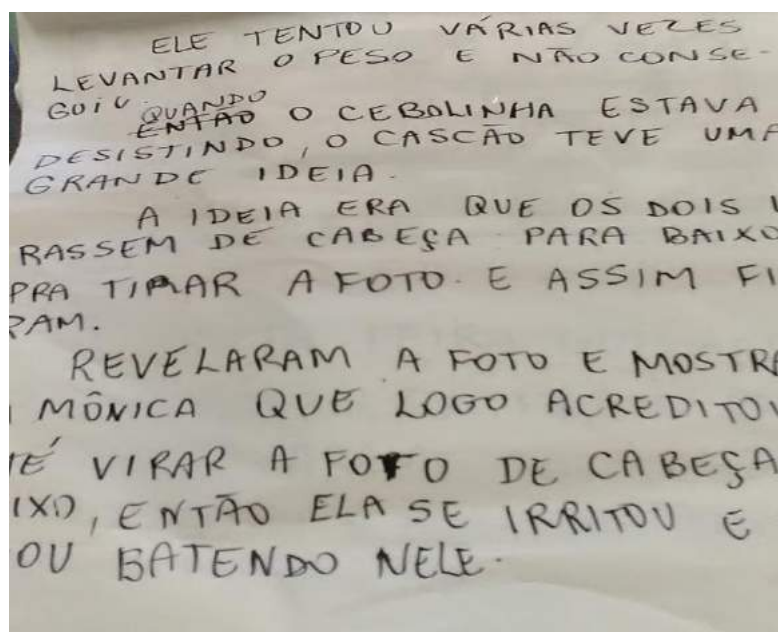 ELE TENTOU VÁRIAS VEZES
LEVANTAR O PESO E NÃO CONSE-
GUIU QUANDO
ENTÃO O CEBOLINHA ESTAVA
DESISTINDO, O CASCÃO TEVE UMA
GRANDE IDEIA.
A IDEIA ERA QUE OS DOIS
RASSEM DE CABEÇA PARA BAIXO
PRA TIRAR A FOTO. E ASSIM FI
RAM.
REVELARAM A FOTO E MOSTRA
MÔNICA QUE LOGO ACREDITOU
TÉ VIRAR A FOTO DE CABEÇA
IXO, ENTÃO ELA SE IRRITOU E
OU BATENDO NELE.